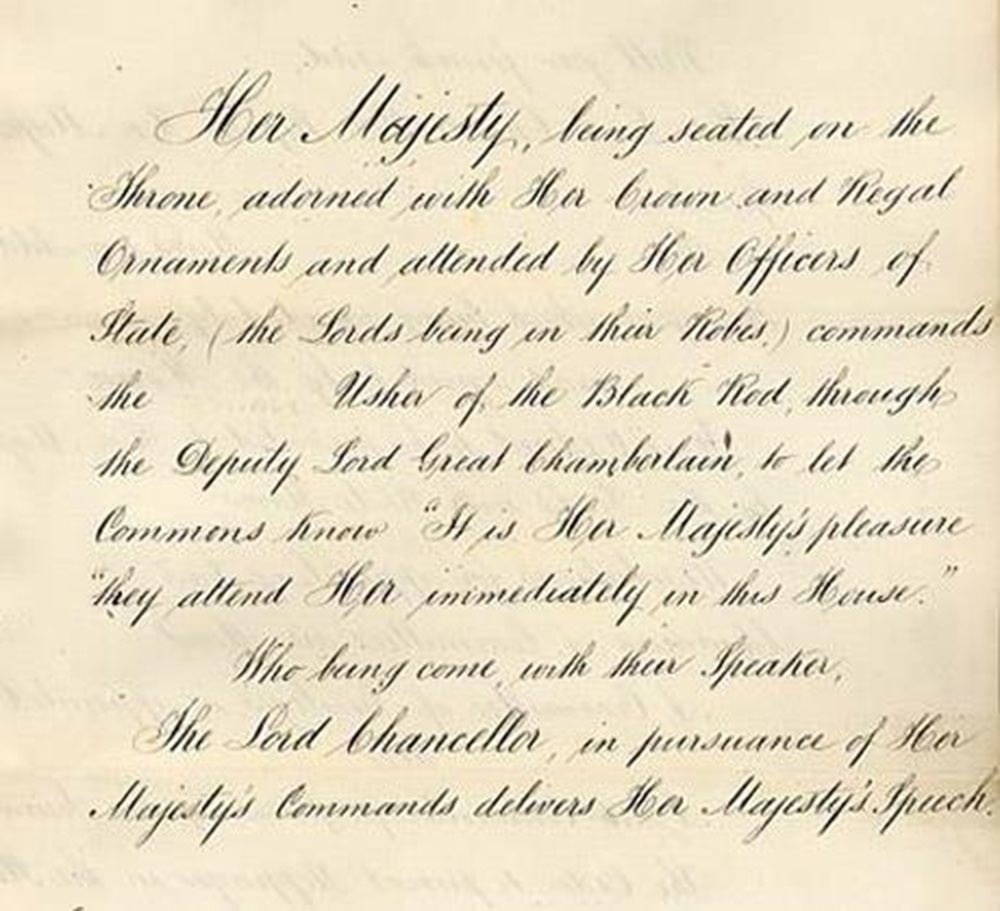 Her Majesty, being seated on the
Throne, adorned with Her Crown and Regal
Ornaments and attended by Her Officers of
State, (the Lords being in their Robes,) commands
the Usher of the Black Rod, through
the Deputy Lord Great Chamberlain, to let the
Commons know "It is Her Majesty's pleasure
"they attend Her immediately in this House."
Who being come, with their Speaker,
The Lord Chancellor, in pursuance of Her
Majesty's Commands delivers Her Majesty's Speech.